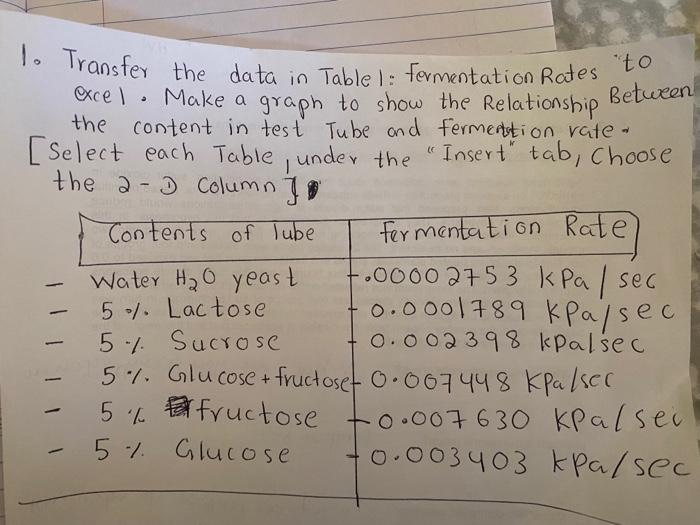 1. Transfer the data in Table 1: fermentation Rates to
excel. Make a graph to show the Relationship Between
the content in test Tube and fermention rate.
[Select each Table, under the "Insert" tab, Choose
the 2-D Column].
Contents of Tube fermentation Rate
- Water H2O yeast - .00002753 kPa/sec
- 5 %. Lactose - 0.0001789 kPa/sec
- 5 %. Sucrose - 0.002398 kPa/sec
- 5 %. Glucose + fructose - 0.007448 kPa/sec
- 5 % fructose - 0.007630 kPa/sec
- 5 %. Glucose - 0.003403 kPa/sec